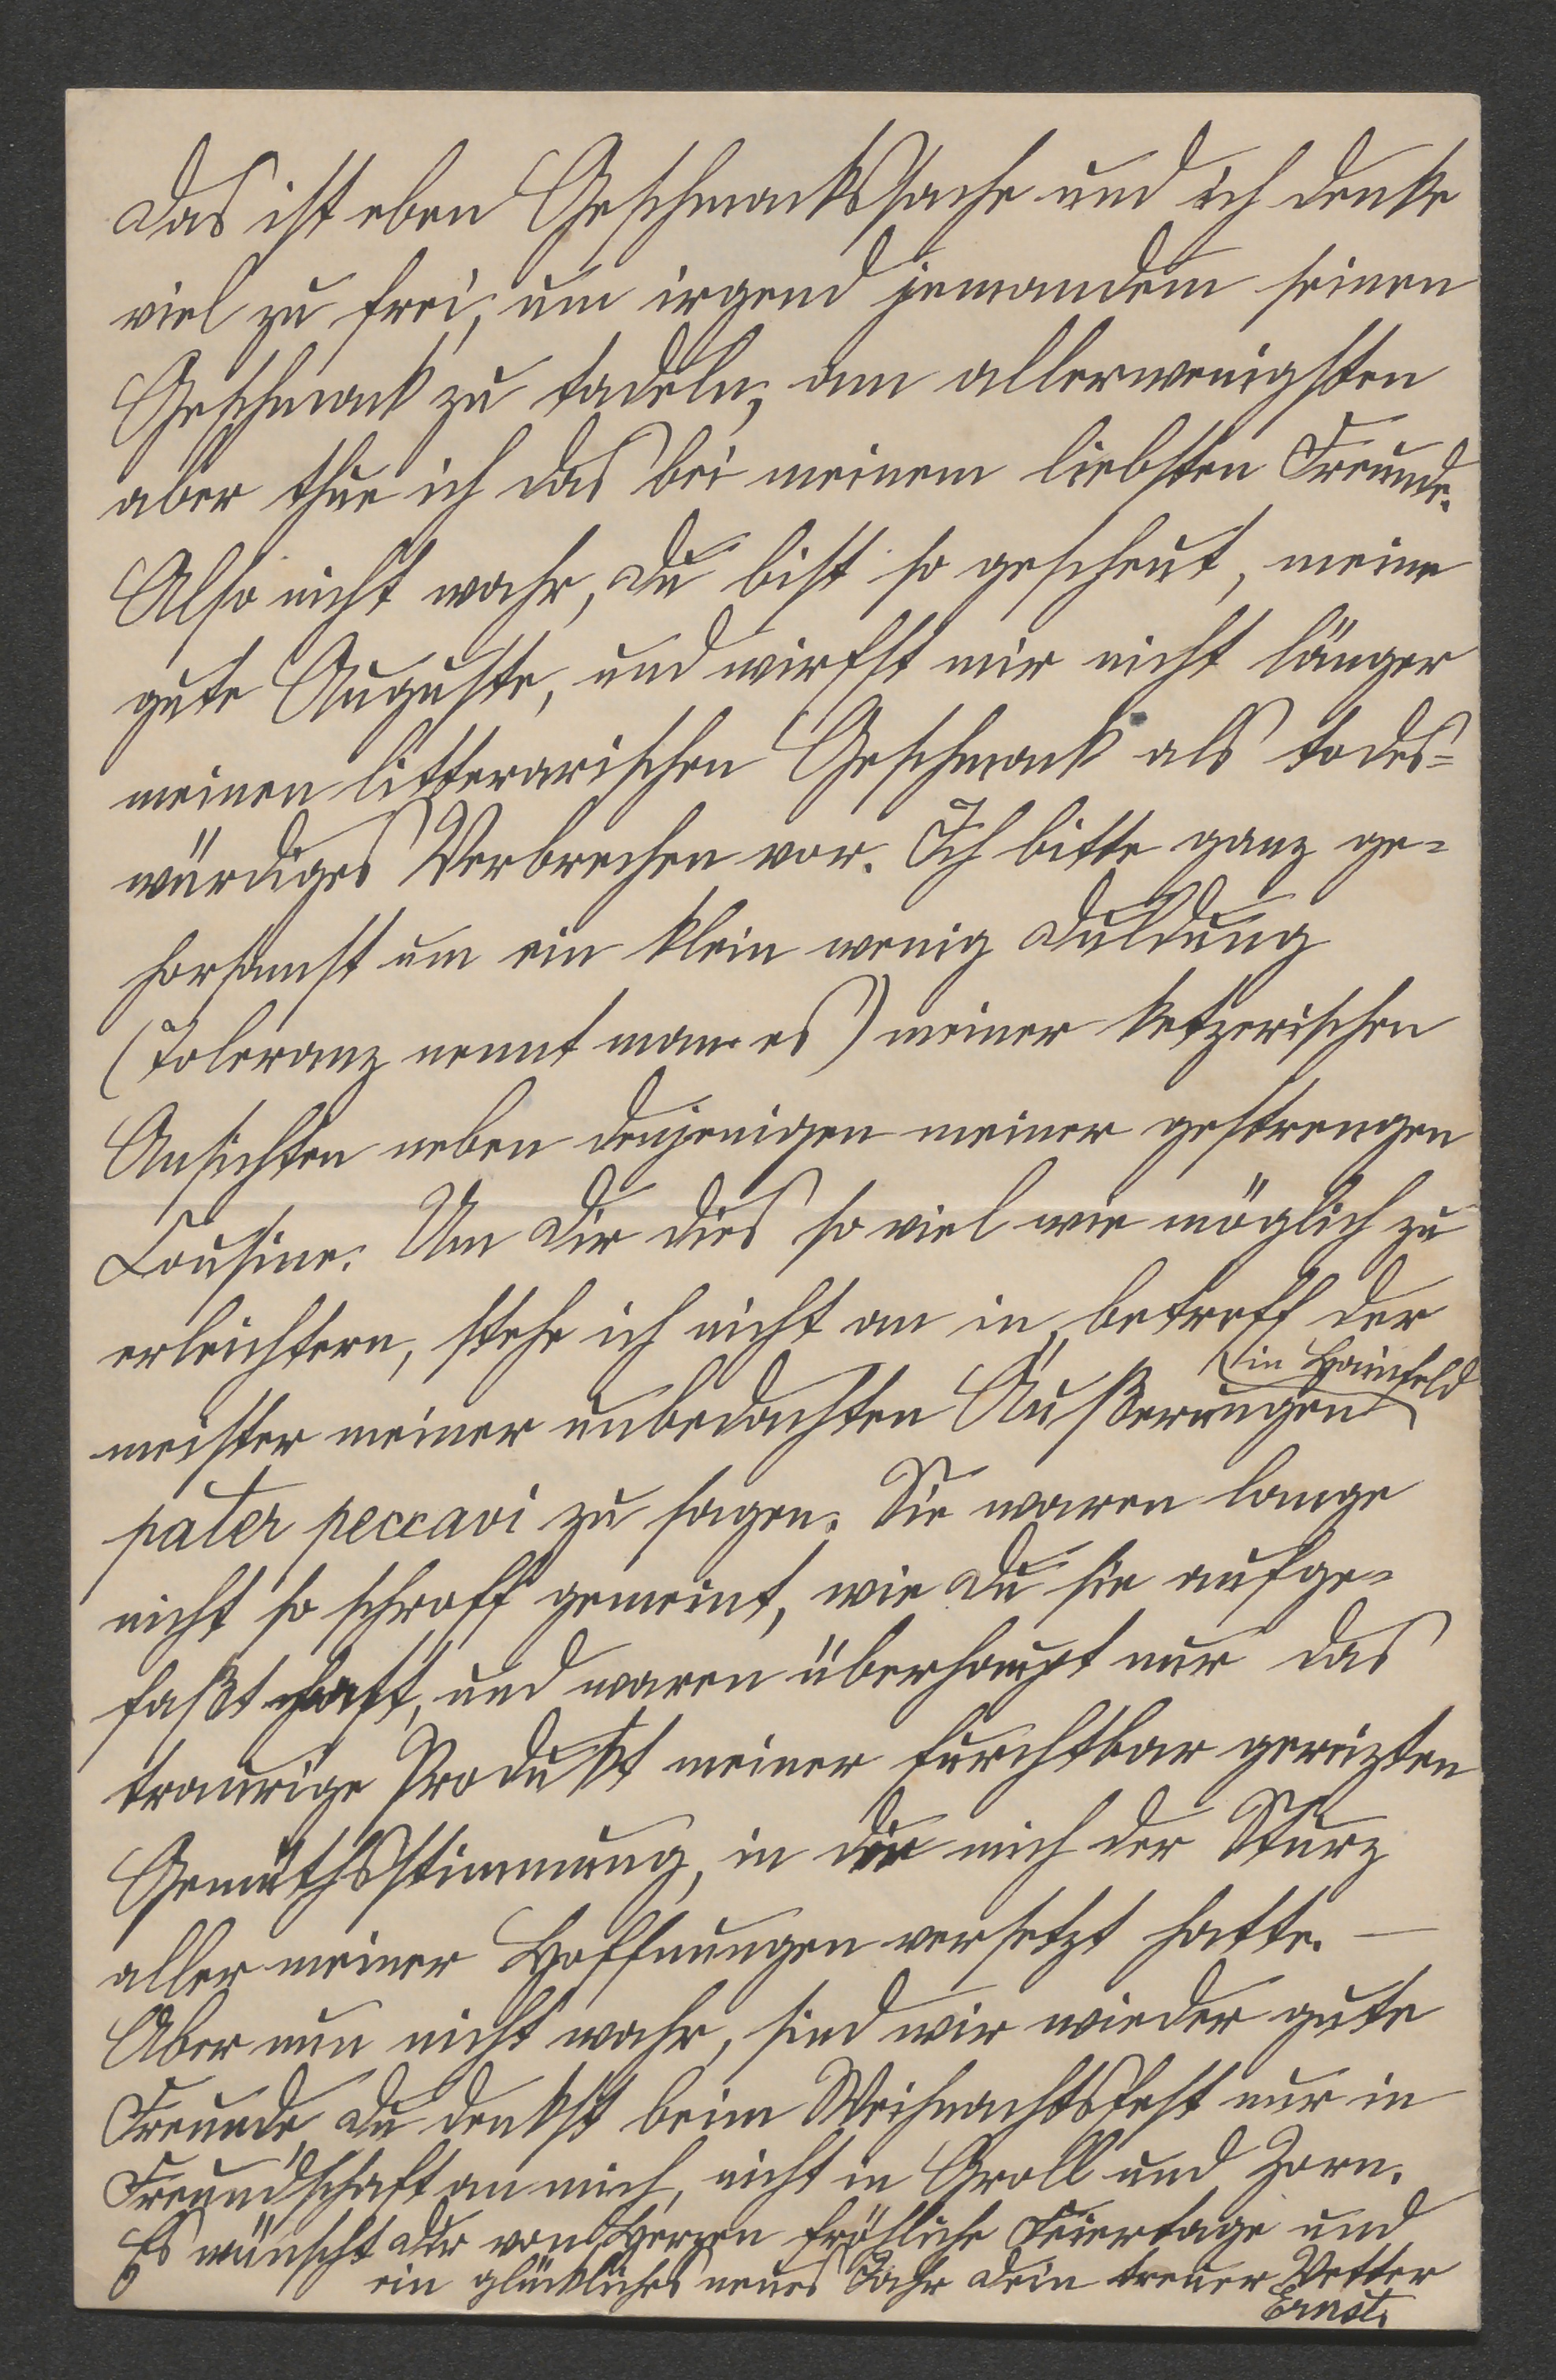 Das ist eben Geschmackssache und ich denke
viel zu frei, um irgend jemandem seinen
Geschmack zu tadeln, am allerwenigsten
aber thue ich das bei meinem liebsten Freunde.
Also nicht wahr, Du bist so gescheut, meine
gute Auguste, und wirfst mir nicht länger
meinen litterarischen Geschmack als todes-
würdiges Verbrechen vor. Ich bitte ganz ge-
horsamst um ein klein wenig Duldung
(Toleranz nennt man es) meiner ketzerischen
Ansichten neben denjenigen meiner gestrengen
Cousine. Um Dir dies so viel wie möglich zu
erleichtern, stehe ich nicht an in betreff der
in Hainfeld
meister meiner unbedachten Äußerungen
pater peccavi zu sagen. Sie waren lange
nicht so schroff gemeint, wie Du sie aufge-
faßt hast, und waren überhaupt nur das
traurige Produkt meiner furchtbar gereizten
Gemüthsstimmung, in die mich der Sturz
aller meiner Hoffnungen versetzt hatte. —
Aber nun nicht wahr, sind wir wieder gute
Freunde, Du denkst beim Weihnachtsfest nur in
Freundschaft an mich, nicht in Groll und Zorn.
Es wünscht Dir von Herzen fröhliche Feiertage und
ein glückliches neues Jahr Dein treuer Vetter
Ernst.